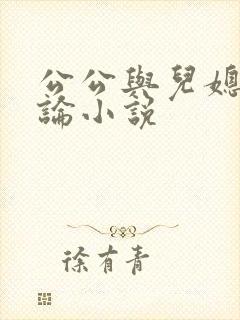 公公與兒媳
論小說
徐有青